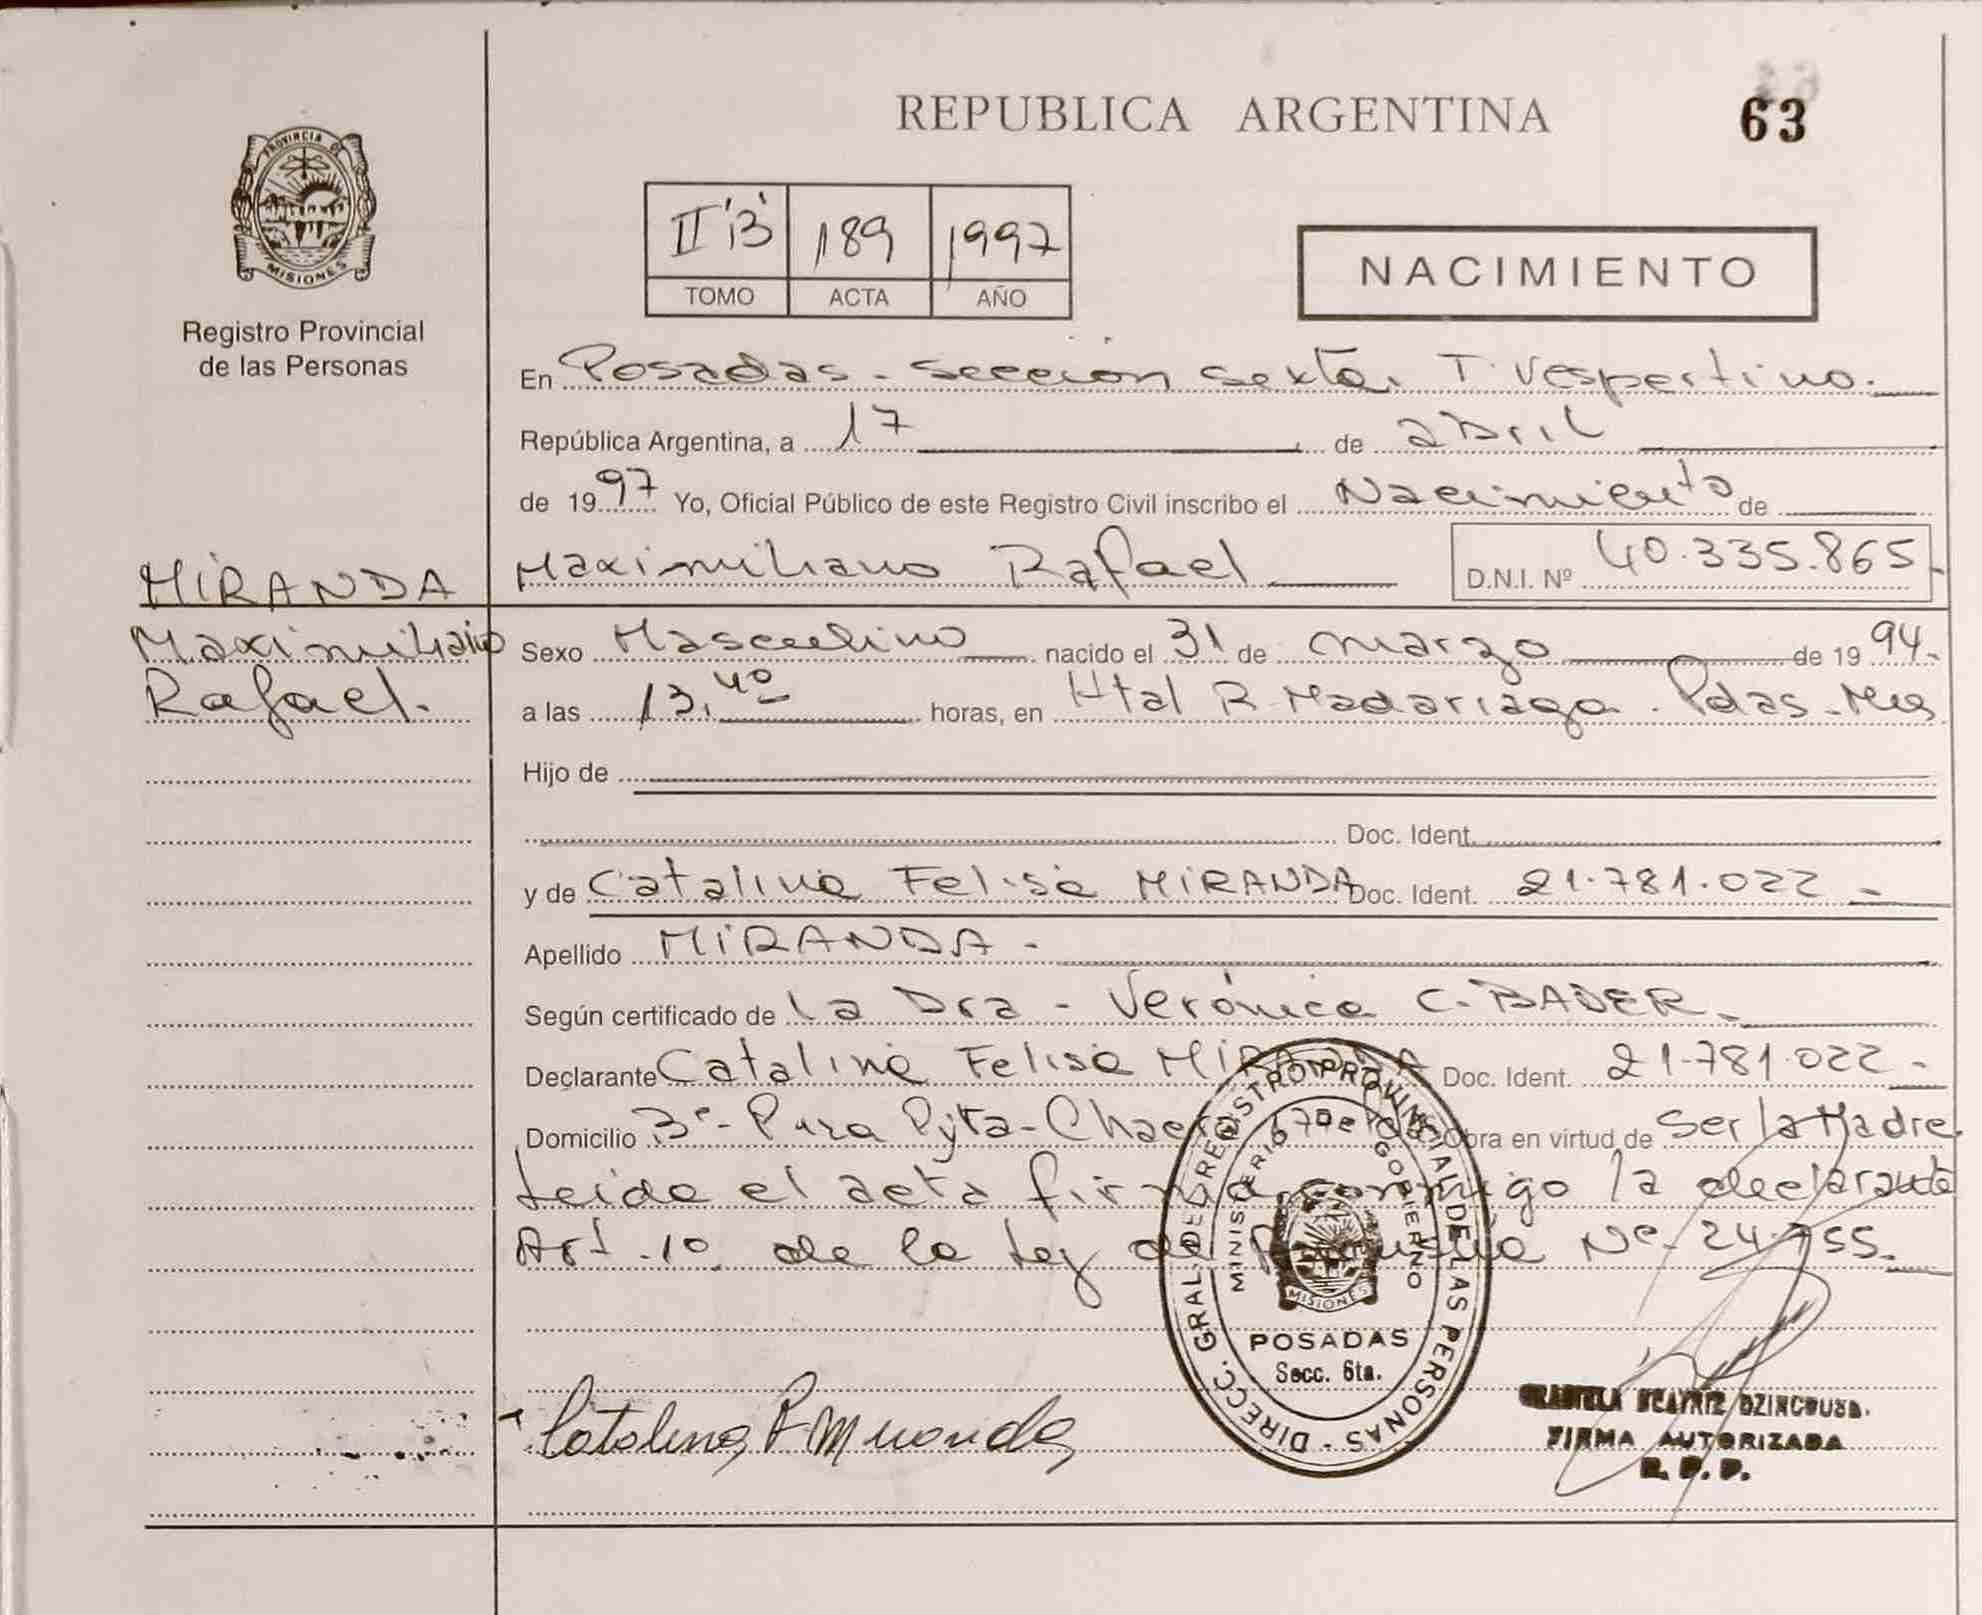 REPUBLICA ARGENTINA
63
PROVINCIA DE
MISIONES
Registro Provincial
de las Personas
II "B" 189 1997
TOMO ACTA AÑO
NACIMIENTO
En Posadas - Sección Sexta. T. Vespertino.
República Argentina, a 17 de abril
de 1997 Yo, Oficial Público de este Registro Civil inscribo el Nacimiento de
Maximiliano Rafael D.N.I. Nº 40.335.865-
MIRANDA
Maximiliano
Rafael.
Sexo Masculino nacido el 31 de marzo de 1994.
a las 13,40 horas, en Htal R. Madariaga. Pdas - Mns
Hijo de
Doc. Ident.
y de Catalina Felisa MIRANDA Doc. Ident. 21.781.022-
Apellido MIRANDA -
Según certificado de la Dra - Verónica C. BADER.
Declarante Catalina Felisa MIRANDA Doc. Ident. 21.781.022-
Domicilio 3º - Pira Pyta - Chacra 67 de Pdas Obra en virtud de Ser la Madre.
Leida el acta firma conmigo la declarante
Art. 10 de la Ley de Amnistía Nº 24.755.
DIRECC. GRAL. DEL REGISTRO PROVINCIAL DE LAS PERSONAS -
MINISTERIO DE GOBIERNO
MISIONES
POSADAS
Secc. 6ta.
Catalina F Miranda
GRACIELA BEATRIZ
FIRMA AUTORIZADA
R. P. P.